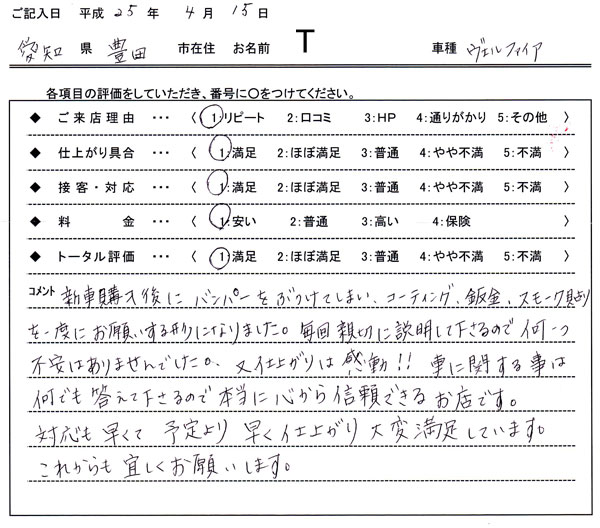 ご記入日 平成 25 年 4 月 15 日
愛知 県 豊田 市在住 お名前 T 車種 ヴェルファイア
各項目の評価をしていただき、番号に○をつけてください。
◆ ご来店理由 ・・・ 〈 1:リピート 2:口コミ 3:HP 4:通りがかり 5:その他 〉
◆ 仕上がり具合 ・・・ 〈 1:満足 2:ほぼ満足 3:普通 4:やや不満 5:不満 〉
◆ 接客・対応 ・・・ 〈 1:満足 2:ほぼ満足 3:普通 4:やや不満 5:不満 〉
◆ 料金 ・・・ 〈 1:安い 2:普通 3:高い 4:保険 〉
◆ トータル評価 ・・・ 〈 1:満足 2:ほぼ満足 3:普通 4:やや不満 5:不満 〉
コメント 新車購入後に バンパーをぶつけてしまい、コーティング、鈑金、スモーク貼り
を一度にお願いする形になりました。毎回親切に説明して下さるので何一つ
不安はありませんでした。又仕上がりは感動!! 車に関する事は
何でも答えて下さるので本当に心から信頼できるお店です。
対応も早くて 予定より早く仕上がり大変満足しています。
これからも宜しくお願いします。